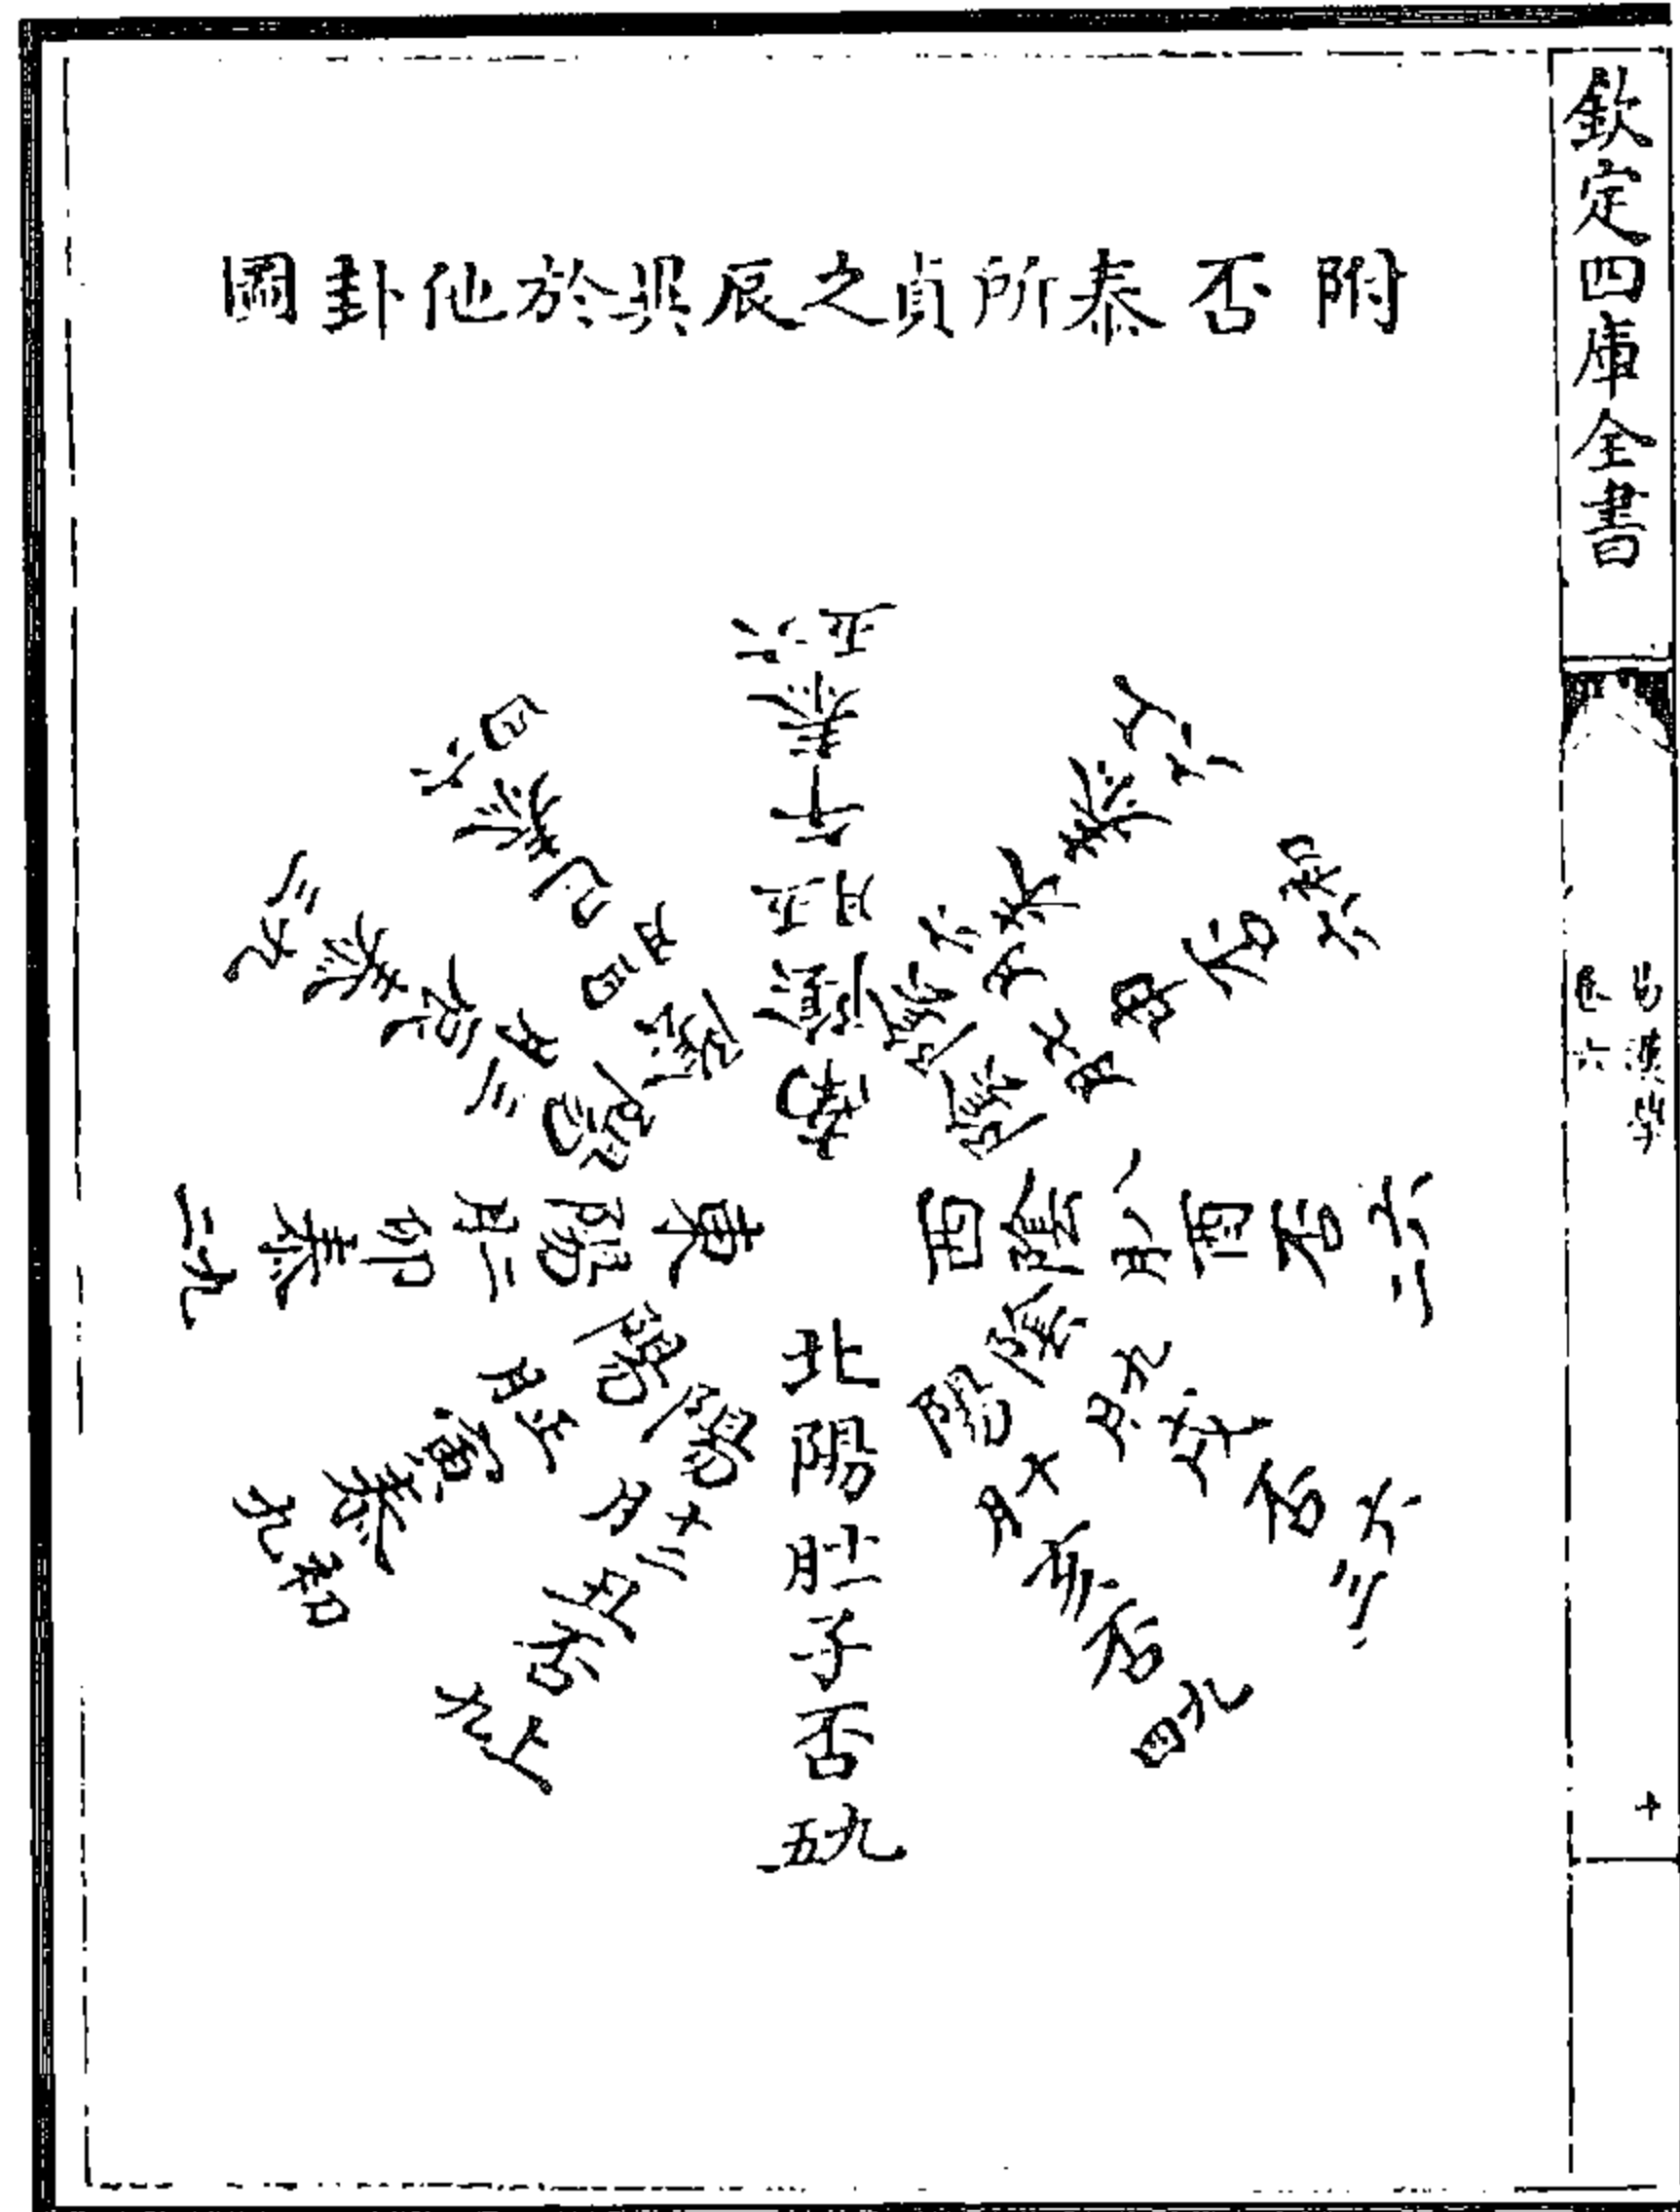 欽定四庫全書
易漢學
卷六
十
附否泰所貞之辰異於他卦圖
北陽十一月子否九五
陽十二月丑否上九
陽正月寅泰初九
東陽二月卯泰九二
陽三月辰泰九三
陰四月巳泰六四
南陰五月午泰六五
陰六月未泰上六
陰七月申否初六
西陰八月酉否六二
陰九月戌否六三
陽十月亥否九四